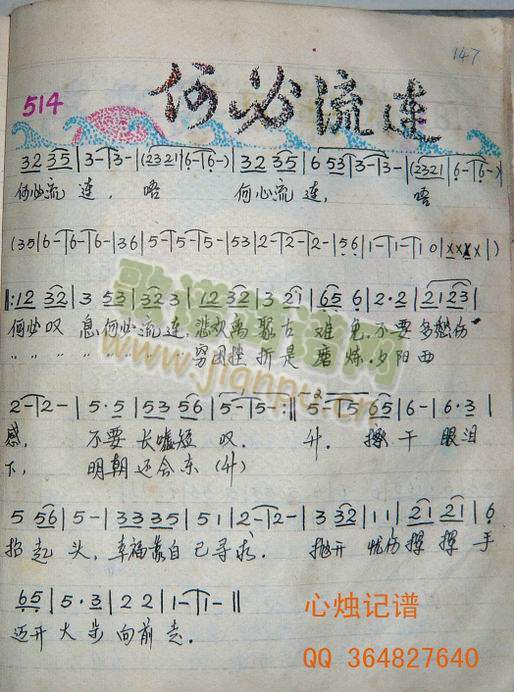 147
514
何必流连
3 2 3 5 | 3 - | 3 - | (2 3 2 1 | 6 - | 6 -) | 3 2 3 5 | 6 5 3 | 3 - | 3 - | (2 3 2 1 | 6 - | 6 -)
何必流 连, 唔 何必流 连, 唔
(3 5 | 6 - | 6 - | 6 - | 3 6 | 5 - | 5 - | 5 - | 5 3 | 2 - | 2 - | 2 - | 5 6 | 1 - | 1 - | 1 0 | x x x x | )
‖: 1 2 3 2 | 3 5 3 | 3 2 3 | 1 2 3 2 | 3 2 1 | 6 5 6 | 2 · 2 | 2 1 2 3 |
何必叹 息,何必流 连,悲欢离 聚古 难免,不要 多愁伤
" " " " " " " 穷困挫 折是 磨炼,夕阳 西
2 - | 2 - | 5 · 5 | 5 3 5 6 | 5 - | 5 - :‖ 5 - | 5 6 5 | 6 - | 6 · 3 |
感, 不要 长嘘短 叹. 升. 擦 干 眼泪
下, 明朝 还会东 (升)
5 5 6 | 5 - | 3 3 3 5 | 5 1 | 2 - | 2 - | 3 3 2 | 1 1 | 2 1 2 1 | 6
抬起 头, 幸福靠自 己寻求. 抛开 忧伤 挥 挥 手
6 5 | 5 · 3 | 2 2 | 1 - | 1 - ‖
迈开 大 步 向前 走.
歌谱简谱网
www.jianpu.cn
心烛记谱
QQ 364827640